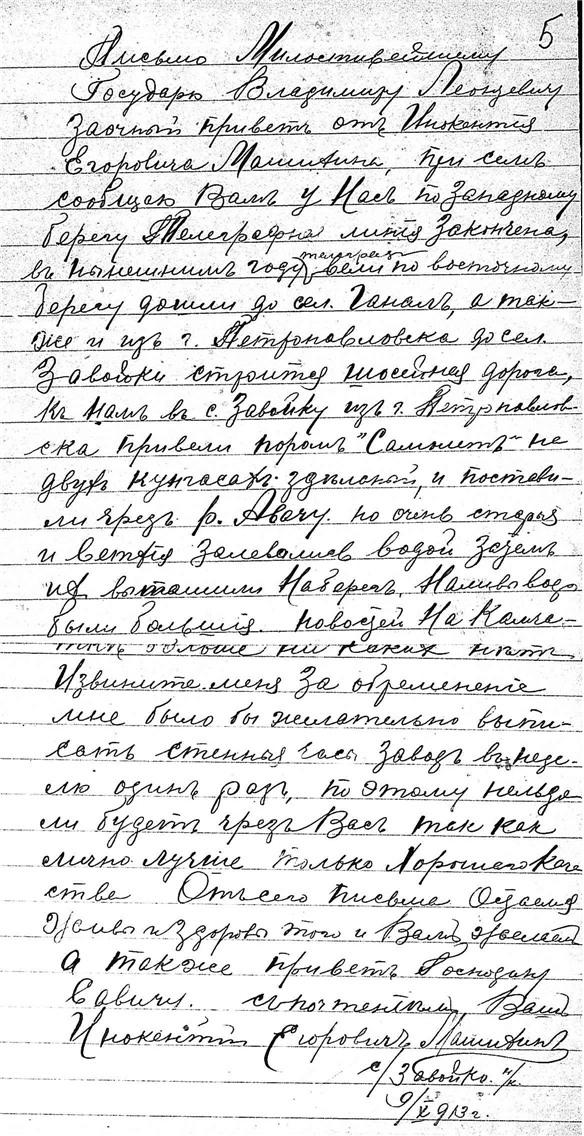 5
Письмо Милостивейшему
Государю Владимиру Леонтьевичу
заочный приветъ отъ Инокентия
Егоровича Машихина, при семъ
сообщаю Вамъ у Насъ по Западному
берегу Телеграфная линія Закончена,
въ нынешнимъ году телеграф вели по восточному
берегу дошли до сел. Ганалъ, а так-
же и изъ г. Петропавловска до сел.
Завойки строится шосейная дорога,
къ намъ въ с. Завойку изъ г. Петропавлов-
ска привели поромъ "Самолетъ" не
двухъ кунгасахъ здѣсный, и постави-
ли чрезъ р. Авачу. но очень старыя
и ветхія Залевались водой Затемъ
их вытащили Наберегъ, Наливы водо
были большія. Новостей На Камча-
ткѣ больше ни каких нѣтъ
Извините меня За обремененіе
мне было бы желательно выпи-
сать стенныя часы Заводъ въ неде-
лю одинъ разъ, по этому нельзя
ли будетъ чрезъ Васъ так как
лично лучше только Хорошаго каче
ства Отъ сего письма Остаемся
Живы и Здоровы того и Вамъ желаемъ
а также приветъ Господину
Савичу. съ почтеніемъ Вашъ
Инокентій Егоровичъ Машихинъ
с/Завойко. н/к.
9/XI 913 г.